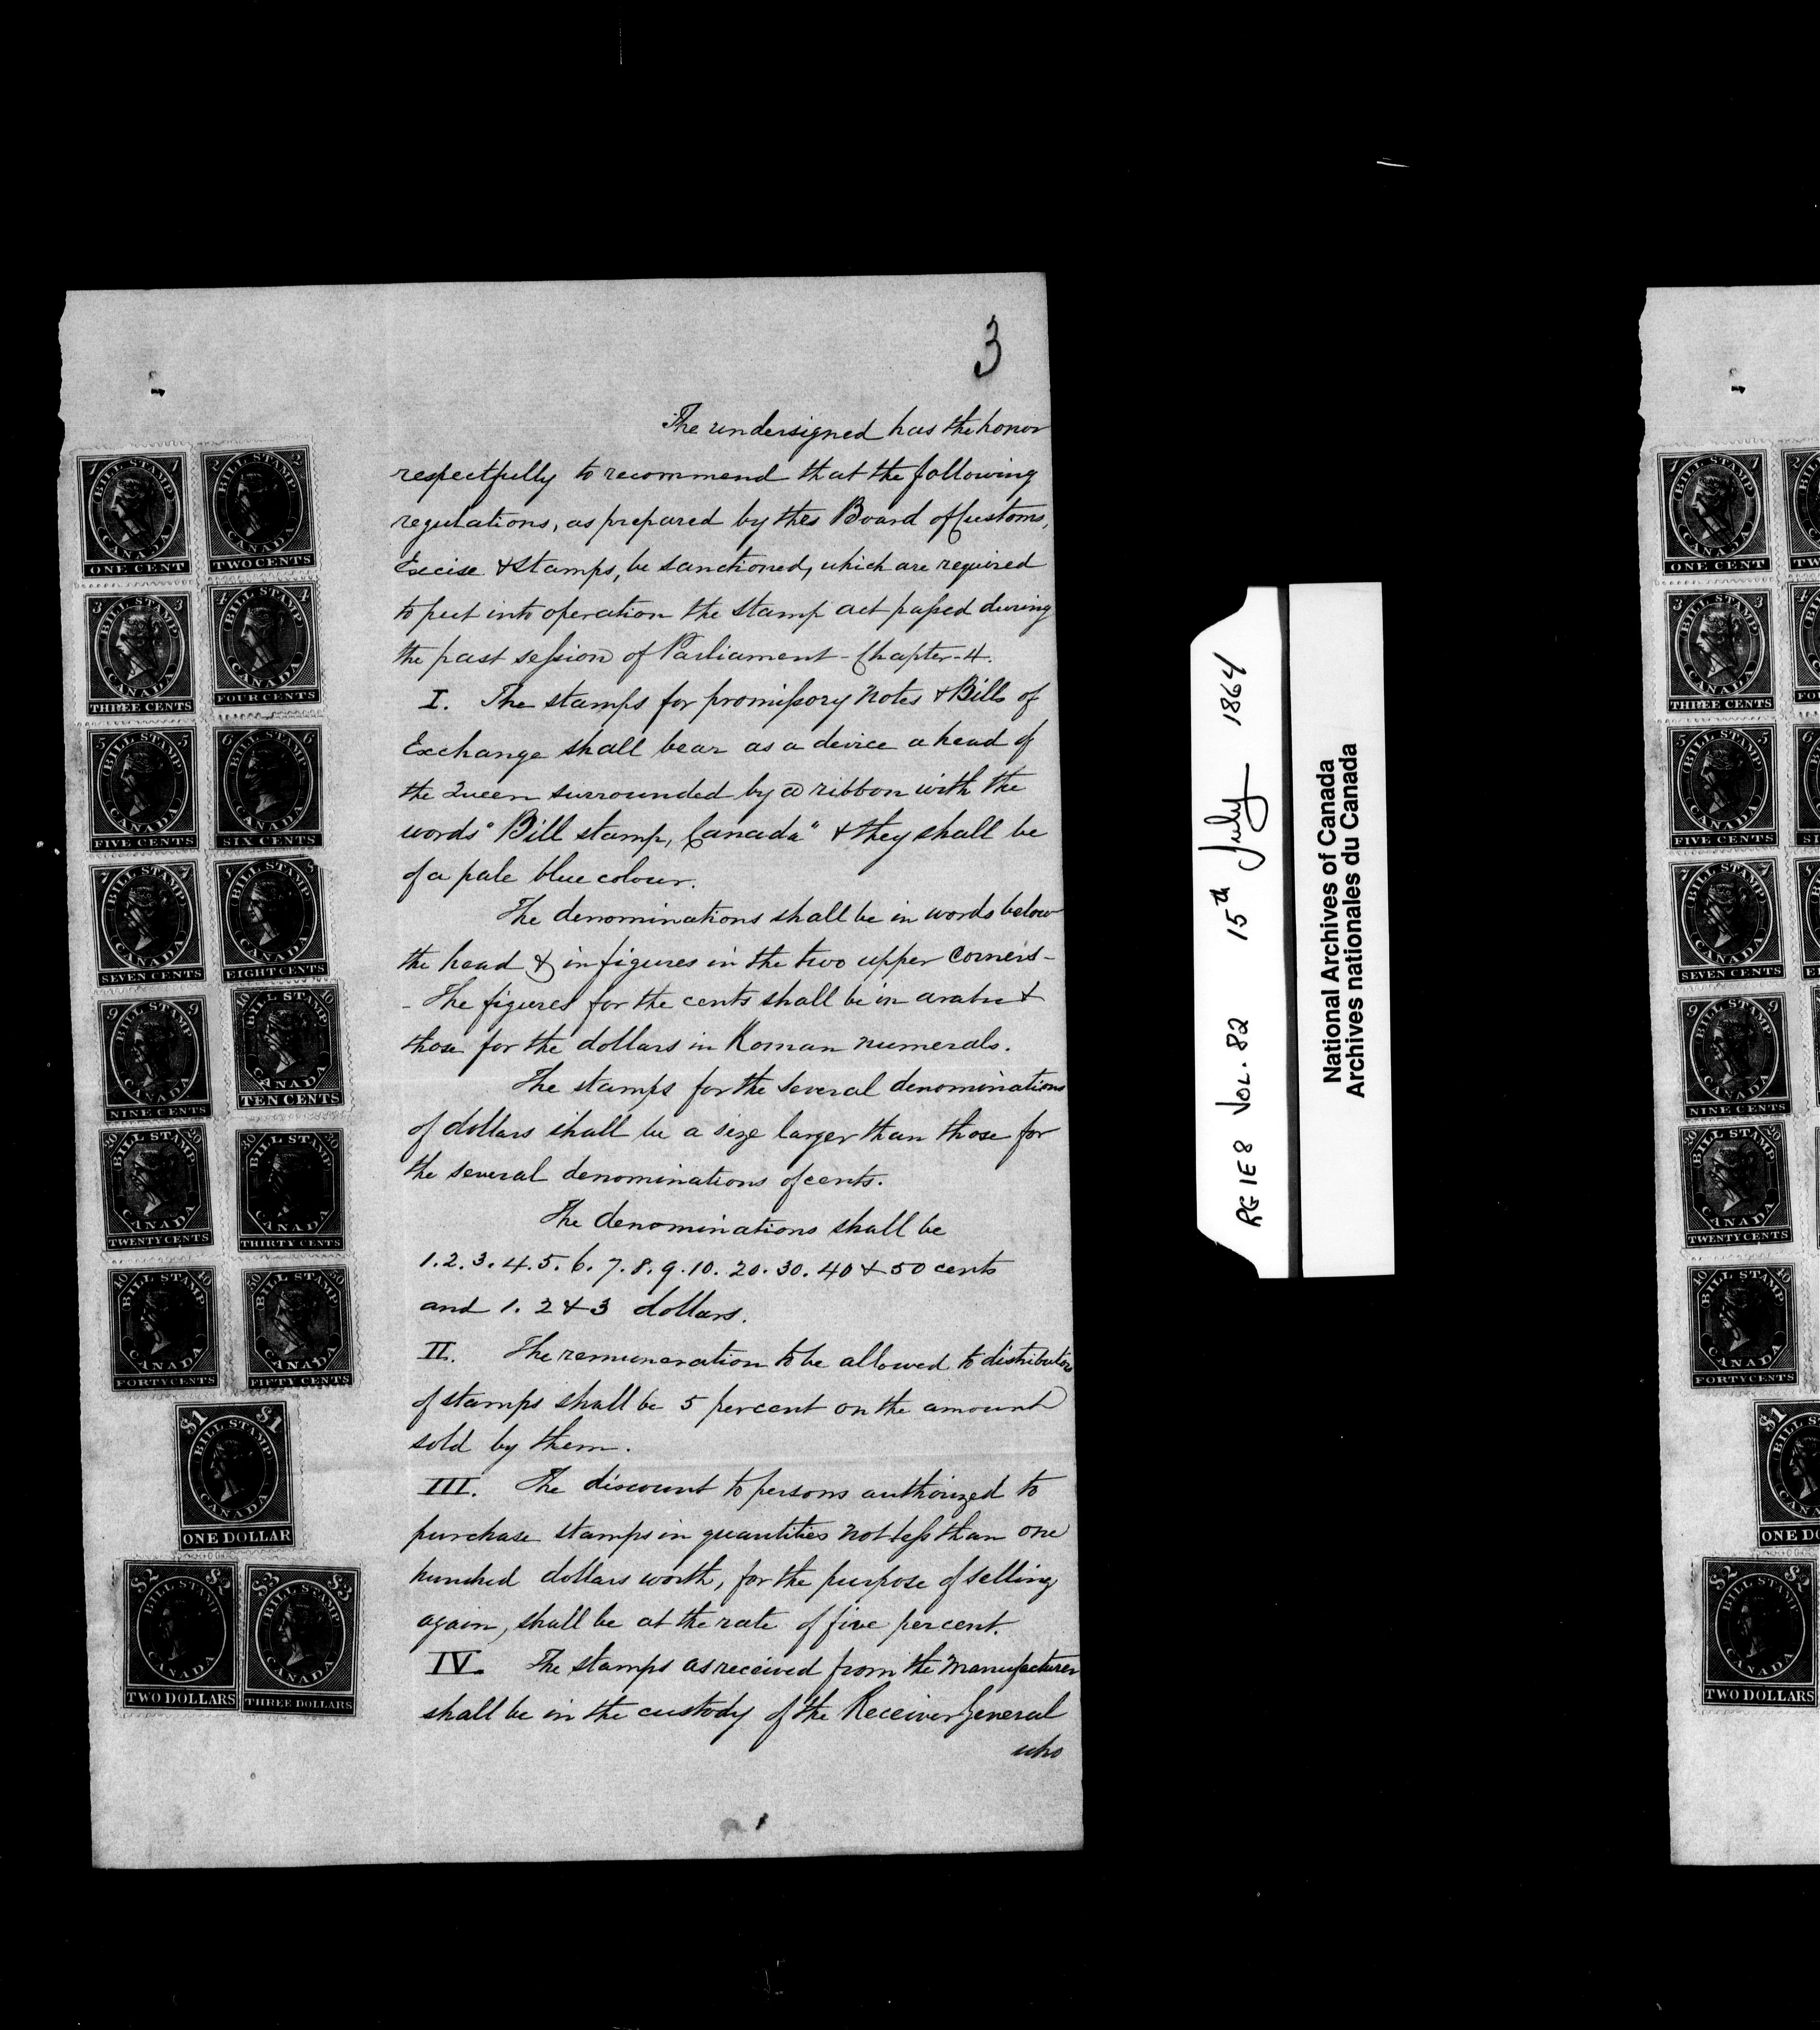 3
The undersigned has the honor
respectfully to recommend that the following
regulations, as prepared by the Board of Customs,
Excise & Stamps, be sanctioned, which are required
to put into operation the Stamp Act passed during
the past session of Parliament - Chapter - 4.
I. The stamps for promissory notes & Bills of
Exchange shall bear as a device a head of
the Queen surrounded by a ribbon with the
words "Bill stamp, Canada" & they shall be
of a pale blue colour.
The denominations shall be in words below
the head & in figures in the two upper corners -
- The figures for the cents shall be in arabic &
those for the dollars in Roman numerals.
The stamps for the several denominations
of dollars shall be a size larger than those for
the several denominations of cents.
The denominations shall be
1. 2. 3. 4. 5. 6. 7. 8. 9. 10. 20. 30. 40 & 50 cents
and 1. 2 & 3 dollars.
II. The remuneration to be allowed to distributors
of stamps shall be 5 percent on the amount
sold by them.
III. The discount to persons authorized to
purchase stamps in quantities not less than one
hundred dollars worth, for the purpose of selling
again, shall be at the rate of five percent.
IV. The stamps as received from the Manufacturer
shall be in the custody of the Receiver General
who
1 BILL STAMP 1
CANADA
ONE CENT
2 BILL STAMP 2
CANADA
TWO CENTS
3 BILL STAMP 3
CANADA
THREE CENTS
4 BILL STAMP 4
CANADA
FOUR CENTS
5 BILL STAMP 5
CANADA
FIVE CENTS
6 BILL STAMP 6
CANADA
SIX CENTS
7 BILL STAMP 7
CANADA
SEVEN CENTS
BILL STAMP
CANADA
EIGHT CENTS
9 BILL STAMP 9
CANADA
NINE CENTS
10 BILL STAMP 10
CANADA
TEN CENTS
20 BILL STAMP 20
CANADA
TWENTY CENTS
30 BILL STAMP 30
CANADA
THIRTY CENTS
40 BILL STAMP 40
CANADA
FORTY CENTS
50 BILL STAMP 50
CANADA
FIFTY CENTS
$1 BILL STAMP $1
CANADA
ONE DOLLAR
$2 BILL STAMP $2
CANADA
TWO DOLLARS
$3 BILL STAMP $3
CANADA
THREE DOLLARS
RG 1E8 VOL. 82 15th July 1864
National Archives of Canada
Archives nationales du Canada
1 BILL STAMP 1
CANADA
ONE CENT
3 BILL STAMP 3
CANADA
THREE CENTS
5 BILL STAMP 5
CANADA
FIVE CENTS
7 BILL STAMP 7
CANADA
SEVEN CENTS
9 BILL STAMP 9
CANADA
NINE CENTS
20 BILL STAMP 20
CANADA
TWENTY CENTS
40 BILL STAMP 40
CANADA
FORTY CENTS
$1
ONE DO
$2 BILL STAMP $2
CANADA
TWO DOLLARS